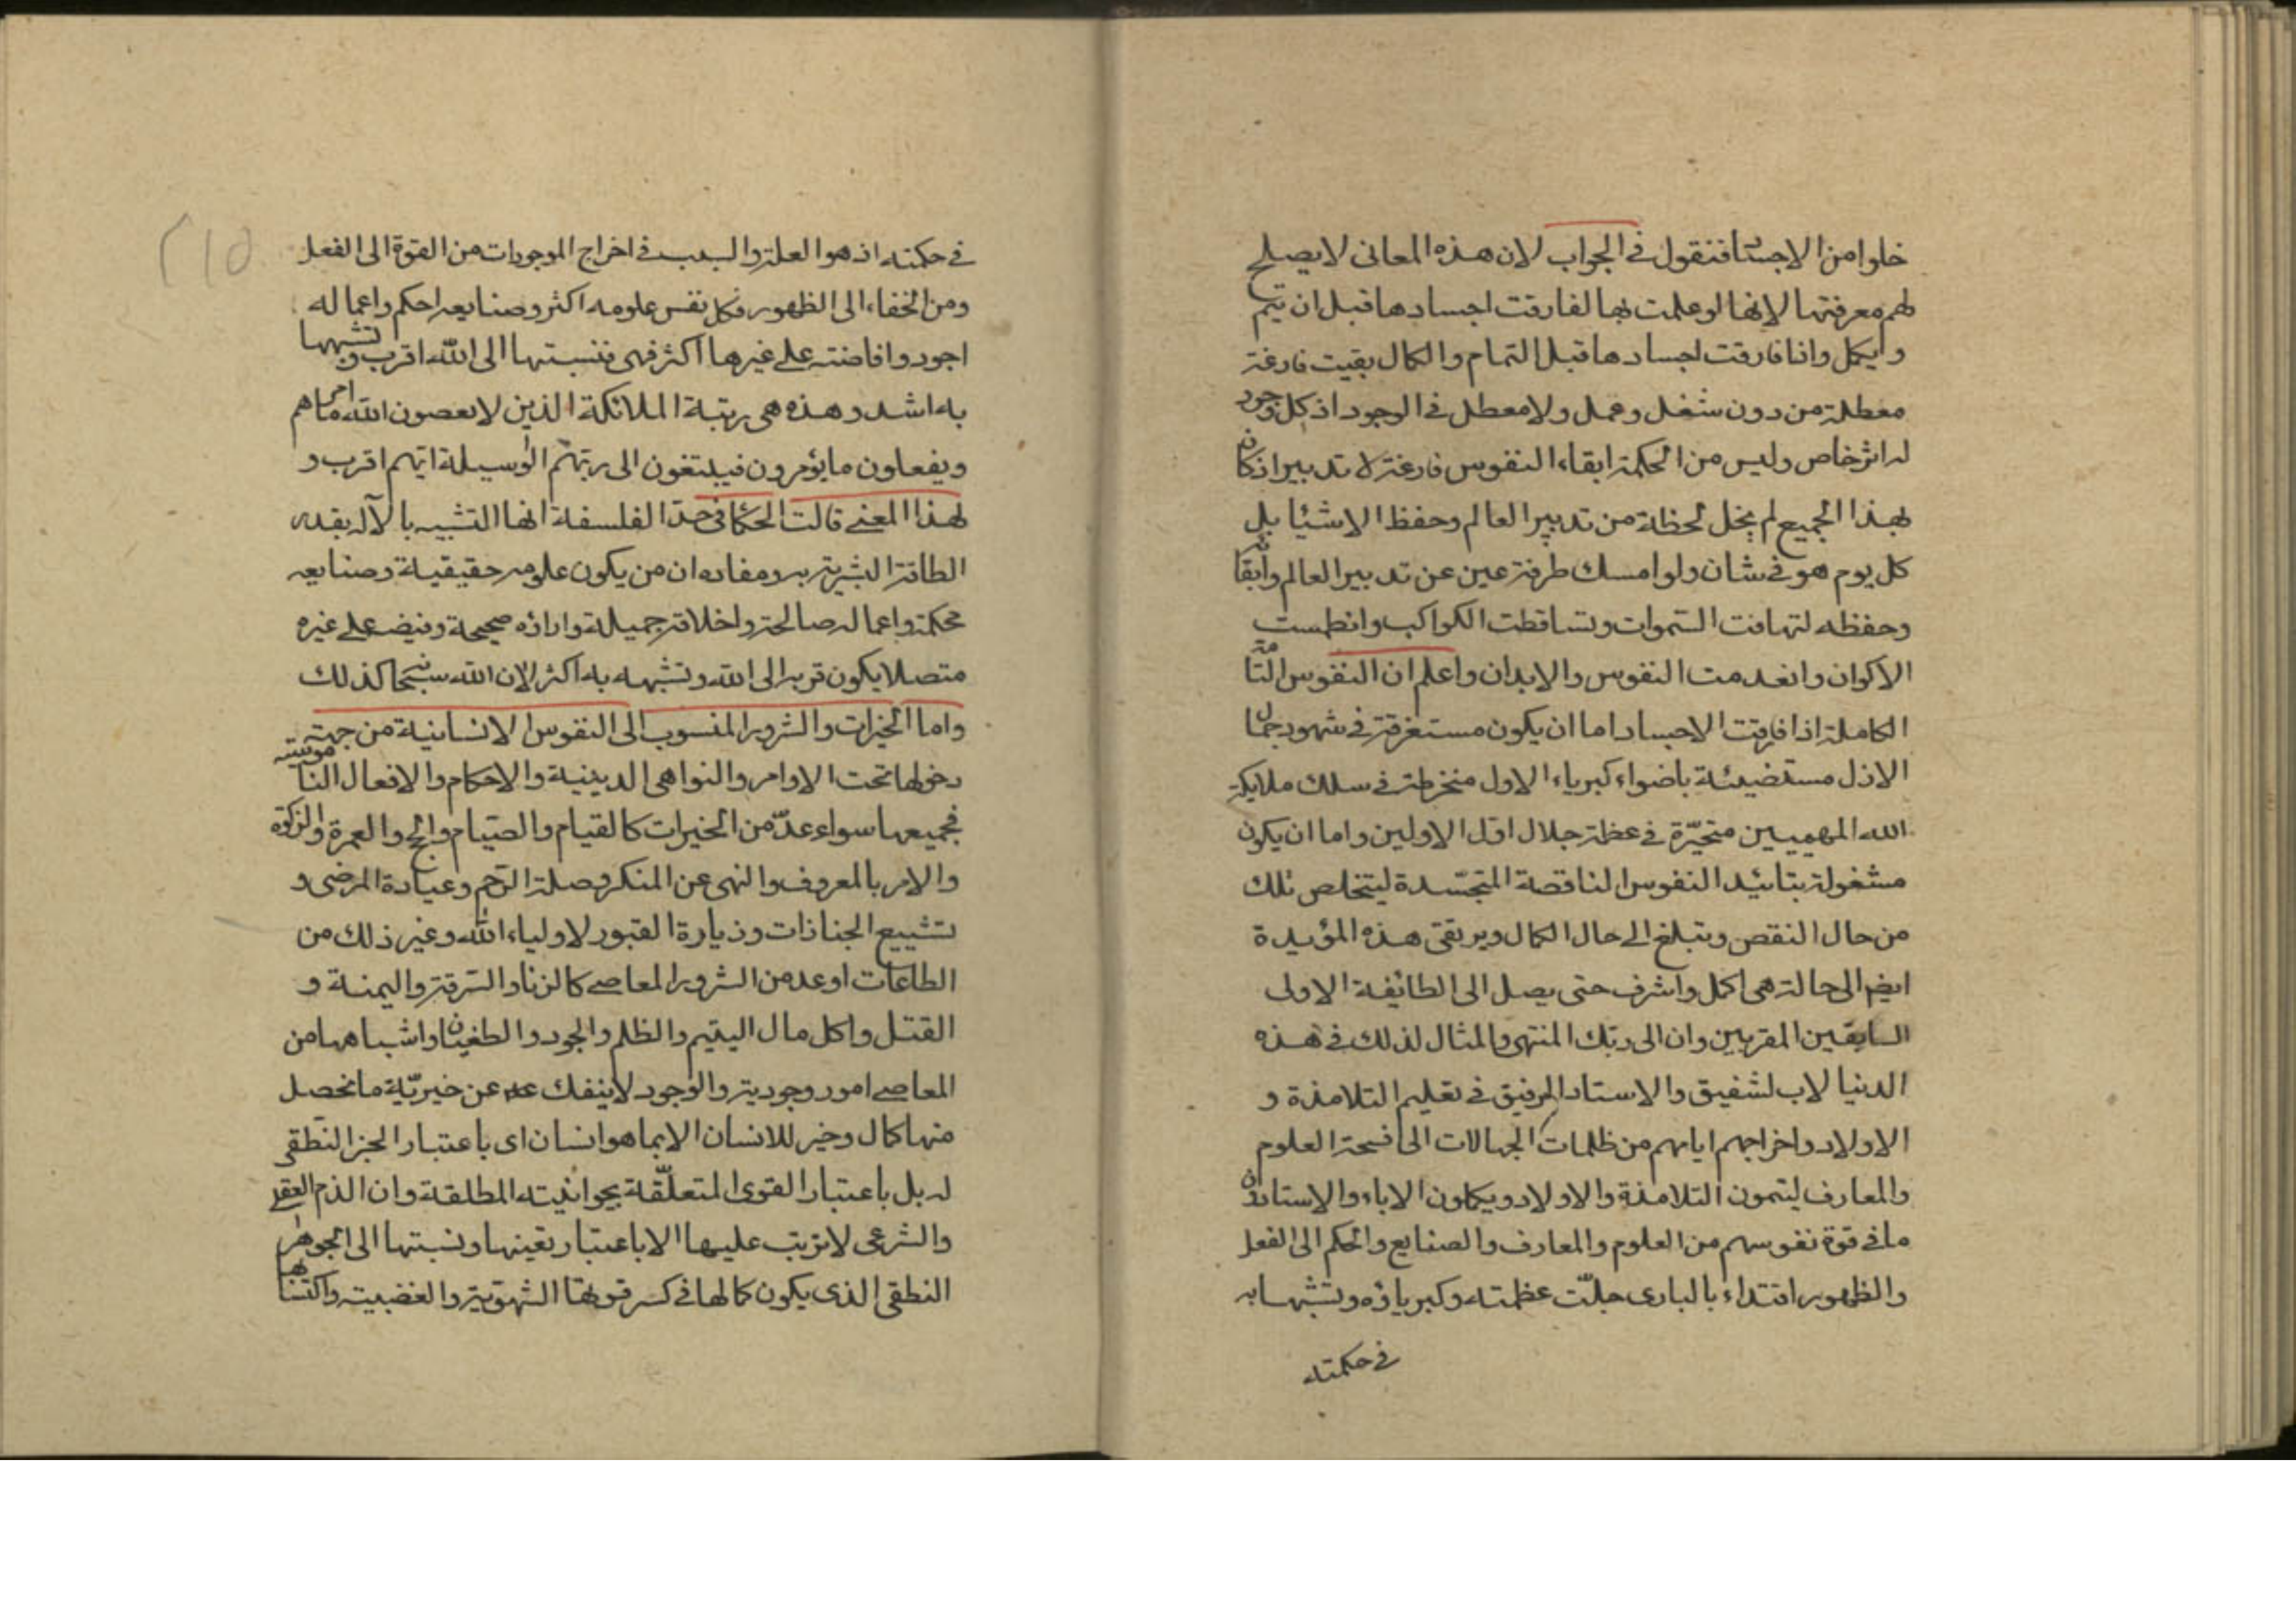 خلوا من الاجسا فنقول في الجواب لان هذه المعانى لا يصلح
لهم معرفتها لانها لو علمت بها لفارقت اجسادها قبل ان يتم
و يكمل واذا فارقت اجسادها قبل التمام والكمال بقيت فارغة
معطلة من دون شغل وعمل ولا معطل في الوجود اذ كل وجود
له اثر خاص وليس من الحكمة ابقاء النفوس فارغة لا تدبير اذ كان
بهذا الجميع لم يخل لحظة من تدبير العالم وحفظ الاشيا بل
كل يوم هو في شان ولو امسك طرفة عين عن تدبير العالم وابقائه
وحفظه لتهافت السموات وتساقطت الكواكب وانطمست
الاكوان وانعدمت النفوس والابدان واعلم ان النفوس التامة
الكاملة اذا فارقت الاجساد اما ان يكون مستغرقة في شهود جمال
الازل مستضيئة باضواء كبرياء الاول منخرطة في سلك ملايكة
الله المهيمين متحيّرة في عظمة جلال اول الاولين واما ان يكون
مشغولة بتائيد النفوس الناقصة المتجسّدة ليتخلص تلك
من حال النقص وتبلغ الى حال الكمال ويرتقى هذه المؤيدة
ايضا الى حالة هى اكمل واشرف حتى يصل الى الطائفة الاولى
السابقين المقربين وان الى ربك المنتهى والمثال لذلك في هذه
الدنيا لاب لشفيق والاستاد الرفيق في تعليم التلامذة و
الاولاد واخراجهم اياهم من ظلمات الجهالات الى فسحة العلوم
والمعارف ليتمون التلامذة والاولاد ويكملون الاباء والاستادون
ما في قوة نفوسهم من العلوم والمعارف والصنايع والحكم الى الفعل
والظهور اقتداء بالبارى جلّت عظمته وكبرياؤه وتشبها به
في حكمته
في حكمته اذ هو العلة والسبب في اخراج الموجودات من القوة الى الفعل
ومن الخفاء الى الظهور فكل نفس علومه اكثر وصنايعه احكم واعماله
اجود وافاضته على غيرها اكثر فهى نسبتها الى الله اقرب وتشبهها
به اشد وهذه هى رتبة الملائكة الذين لا يعصون الله ما امرهم
ويفعلون ما يؤمرون فيبتغون الى ربهم الوسيلة ايهم اقرب و
لهذا المعنى قالت الحكما في حدّ الفلسفة انها التشبيه بالآله بقدر
الطاقة البشرية به ومفاده ان من يكون علومه حقيقية وصنايعه
محكمة واعماله صالحة واخلاقه جميلة واراؤه صحيحة وفيضه على غيره
متصلا يكون قربه الى الله وتشبهه به اكثر لان الله سبحا كذلك
واما الخيرات والشرور المنسوب الى النفوس الانسانية من جهة
دخولها تحت الاوامر والنواهى الدينية والاحكام والافعال الناموسية
فجميعها سواء عدّ من الخيرات كالقيام والصيام والحج والعمرة والزكوة
والامر بالمعروف والنهى عن المنكر وصلة الرحم وعيادة المرضى و
تشييع الجنازات وزيارة القبور لاولياء الله وغير ذلك من
الطاعات او عد من الشرور المعاصى كالزنا والسرقة واليمنة و
القتل واكل مال اليتيم والظلم والجور والطغيان واشباهها من
المعاصى امور وجودية والوجود لا ينفك عن خيريّة ما تحصل
منها كمال وخير للانسان لا بما هو انسان اى باعتبار الجزء النطقى
له بل باعتبار القوى المتعلّقة بحيوانيته المطلقة وان الذم العقلى
والشرعى لا ترتب عليها الا باعتبار تعينها ونسبتها الى الجوهر
النطقى الذى يكون كمالها في كسر قوتها الشهوية والغضبية واكتسا